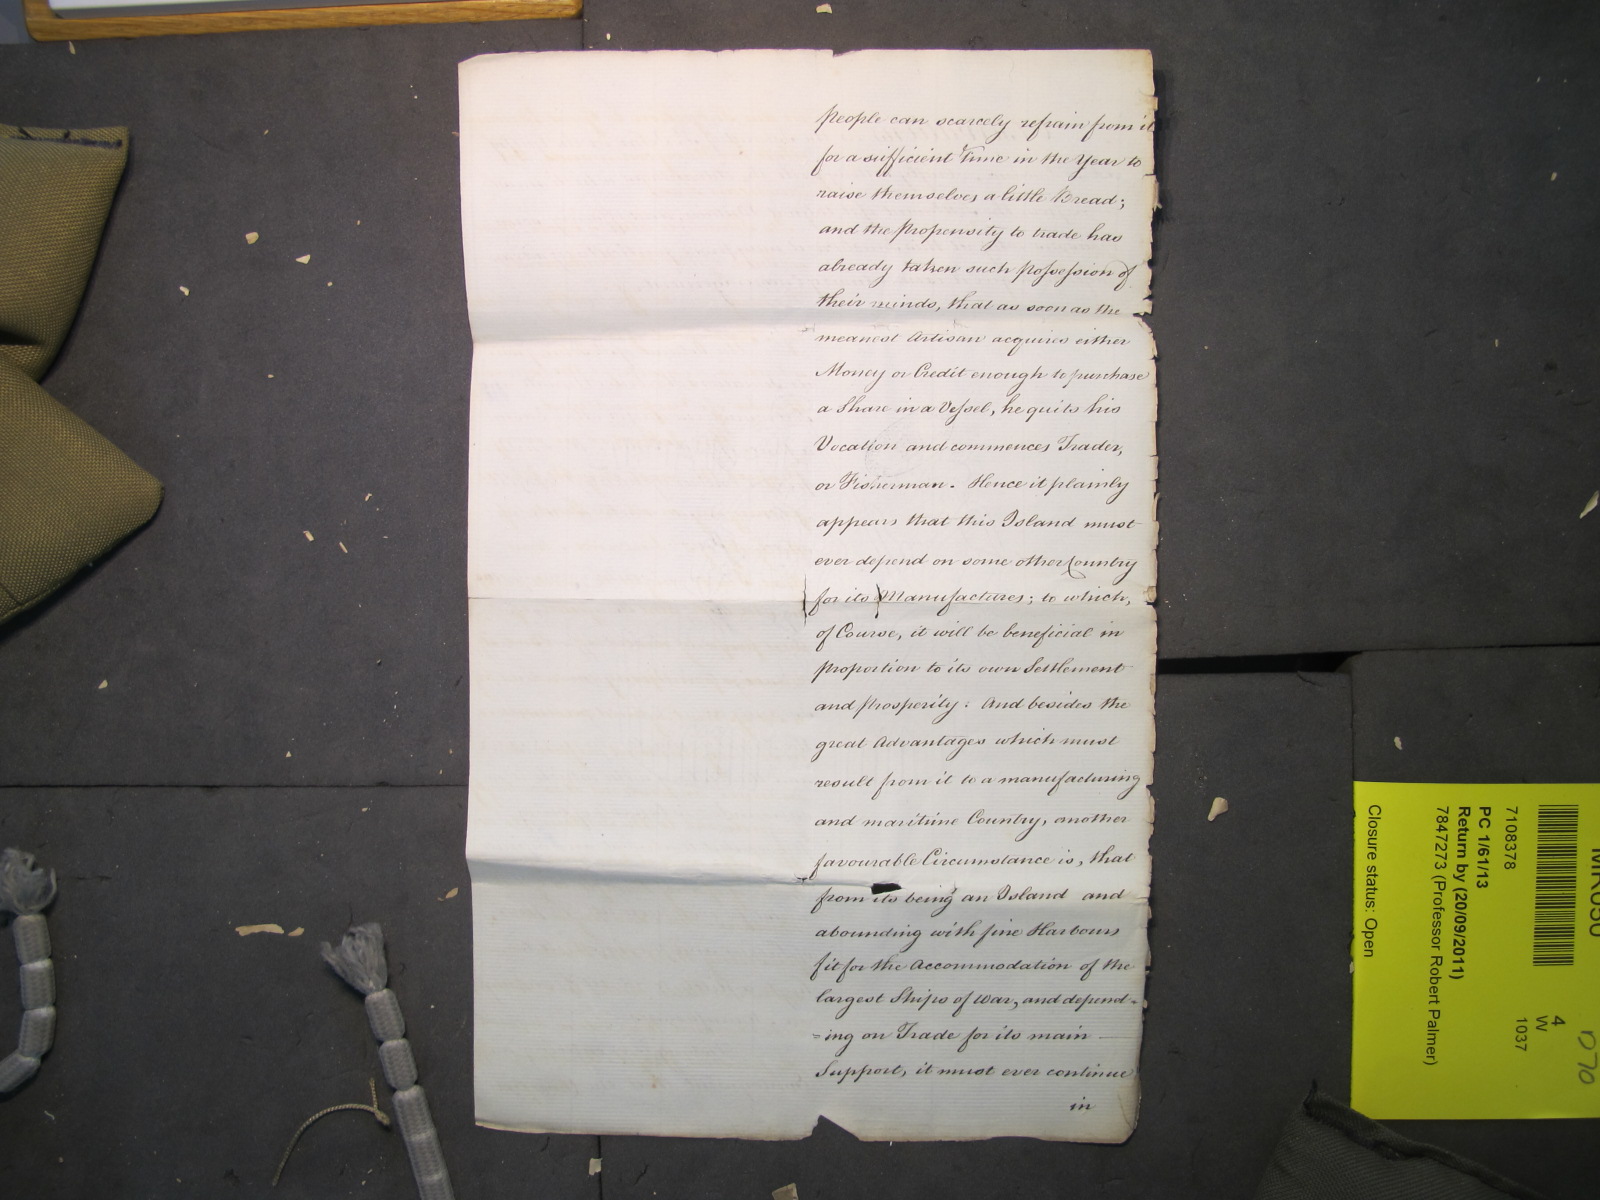 people can scarcely refrain from it
for a sufficient Time in the Year to
raise themselves a little Bread;
and the Propensity to trade has
already taken such Possession of
their minds, that as soon as the
meanest Artisan acquires either
Money or Credit enough to purchase
a Share in a Vessel, he quits his
Vocation and commences Trader,
or Fisherman. Hence it plainly
appears that this Island must
ever depend on some other Country
for its Manufactures; to which,
of Course, it will be beneficial in
proportion to its own Settlement
and Prosperity: And besides the
great Advantages which must
result from it to a manufacturing
and maritime Country, another
favourable Circumstance is, that
from its being an Island and
abounding with fine Harbours
fit for the Accommodation of the
largest Ships of War, and depend-
=ing on Trade for its main
Support, it must ever continue
in
7108378
PC 1/61/13
Return by (20/09/2011)
7847273 (Professor Robert Palmer)
Closure status: Open
4
W
1037